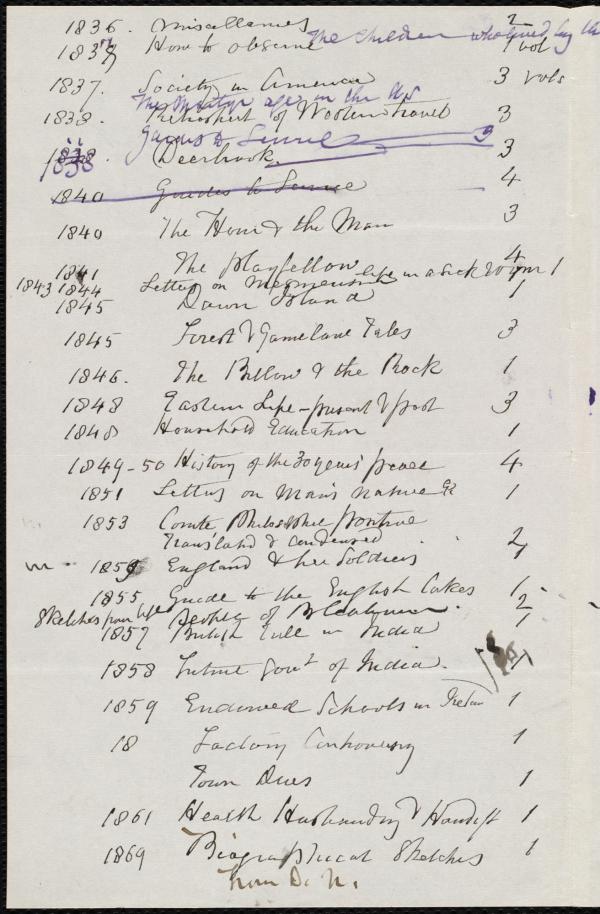 1836. Miscellanies 2
1837 How to observe 1 vol
The children who lived by the
1837. Society in America 3 vols
The Martyr age in the US
1838. Retrospect of Western travel 3
Guides to Service 3
1838. Deerbrook. 3
1840 Guides to Service 4
1840 The Hour & the Man 3
1841 The playfellow 4
1843 1844 Letters on Mesmerism life in a sick room 1
1845 Dawn Island 1
1845 Forest & Gamelaw Tales 3
1846. The Billow & the Rock 1
1848 Eastern Life - present & past 3
1848 Household Education 1
1849-50 History of the 30 years peace 4
1851 Letters on Man's nature &c 1
1853 Comte Philosophie positive
Translated & condensed 2
1859 England & her Soldiers 1
1855 Guide to the English Lakes 1
Sketches from life
1857 British Rule in India 1
1858 Future Govt of India. 1
1859 Endowed Schools in Ireland 1
18 Factory Controversy 1
Town Dues 1
1861 Health Husbandry & Handcft 1
1869 Biographical Sketches 1
from D. N.